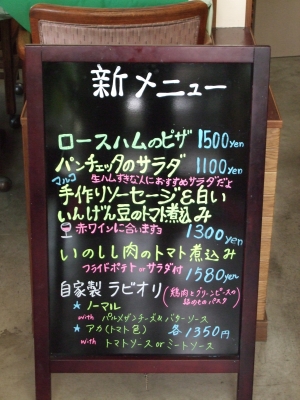 新メニュー
ロースハムのピザ 1500yen
パンチェッタのサラダ 1100yen
マルコ 生ハムすきな人におすすめサラダだよ
手作りソーセージ&白い
いんげん豆のトマト煮込み
赤ワインに合いますョ 1300yen
いのしし肉のトマト煮込み
フライドポテト or サラダ付 1580yen
自家製 ラビオリ (鶏肉とグリンピースの
詰めものパスタ)
★ ノーマル
with パルメザンチーズ&バターソース
★ アカ(トマト色) 各1350円
with トマトソース or ミートソース